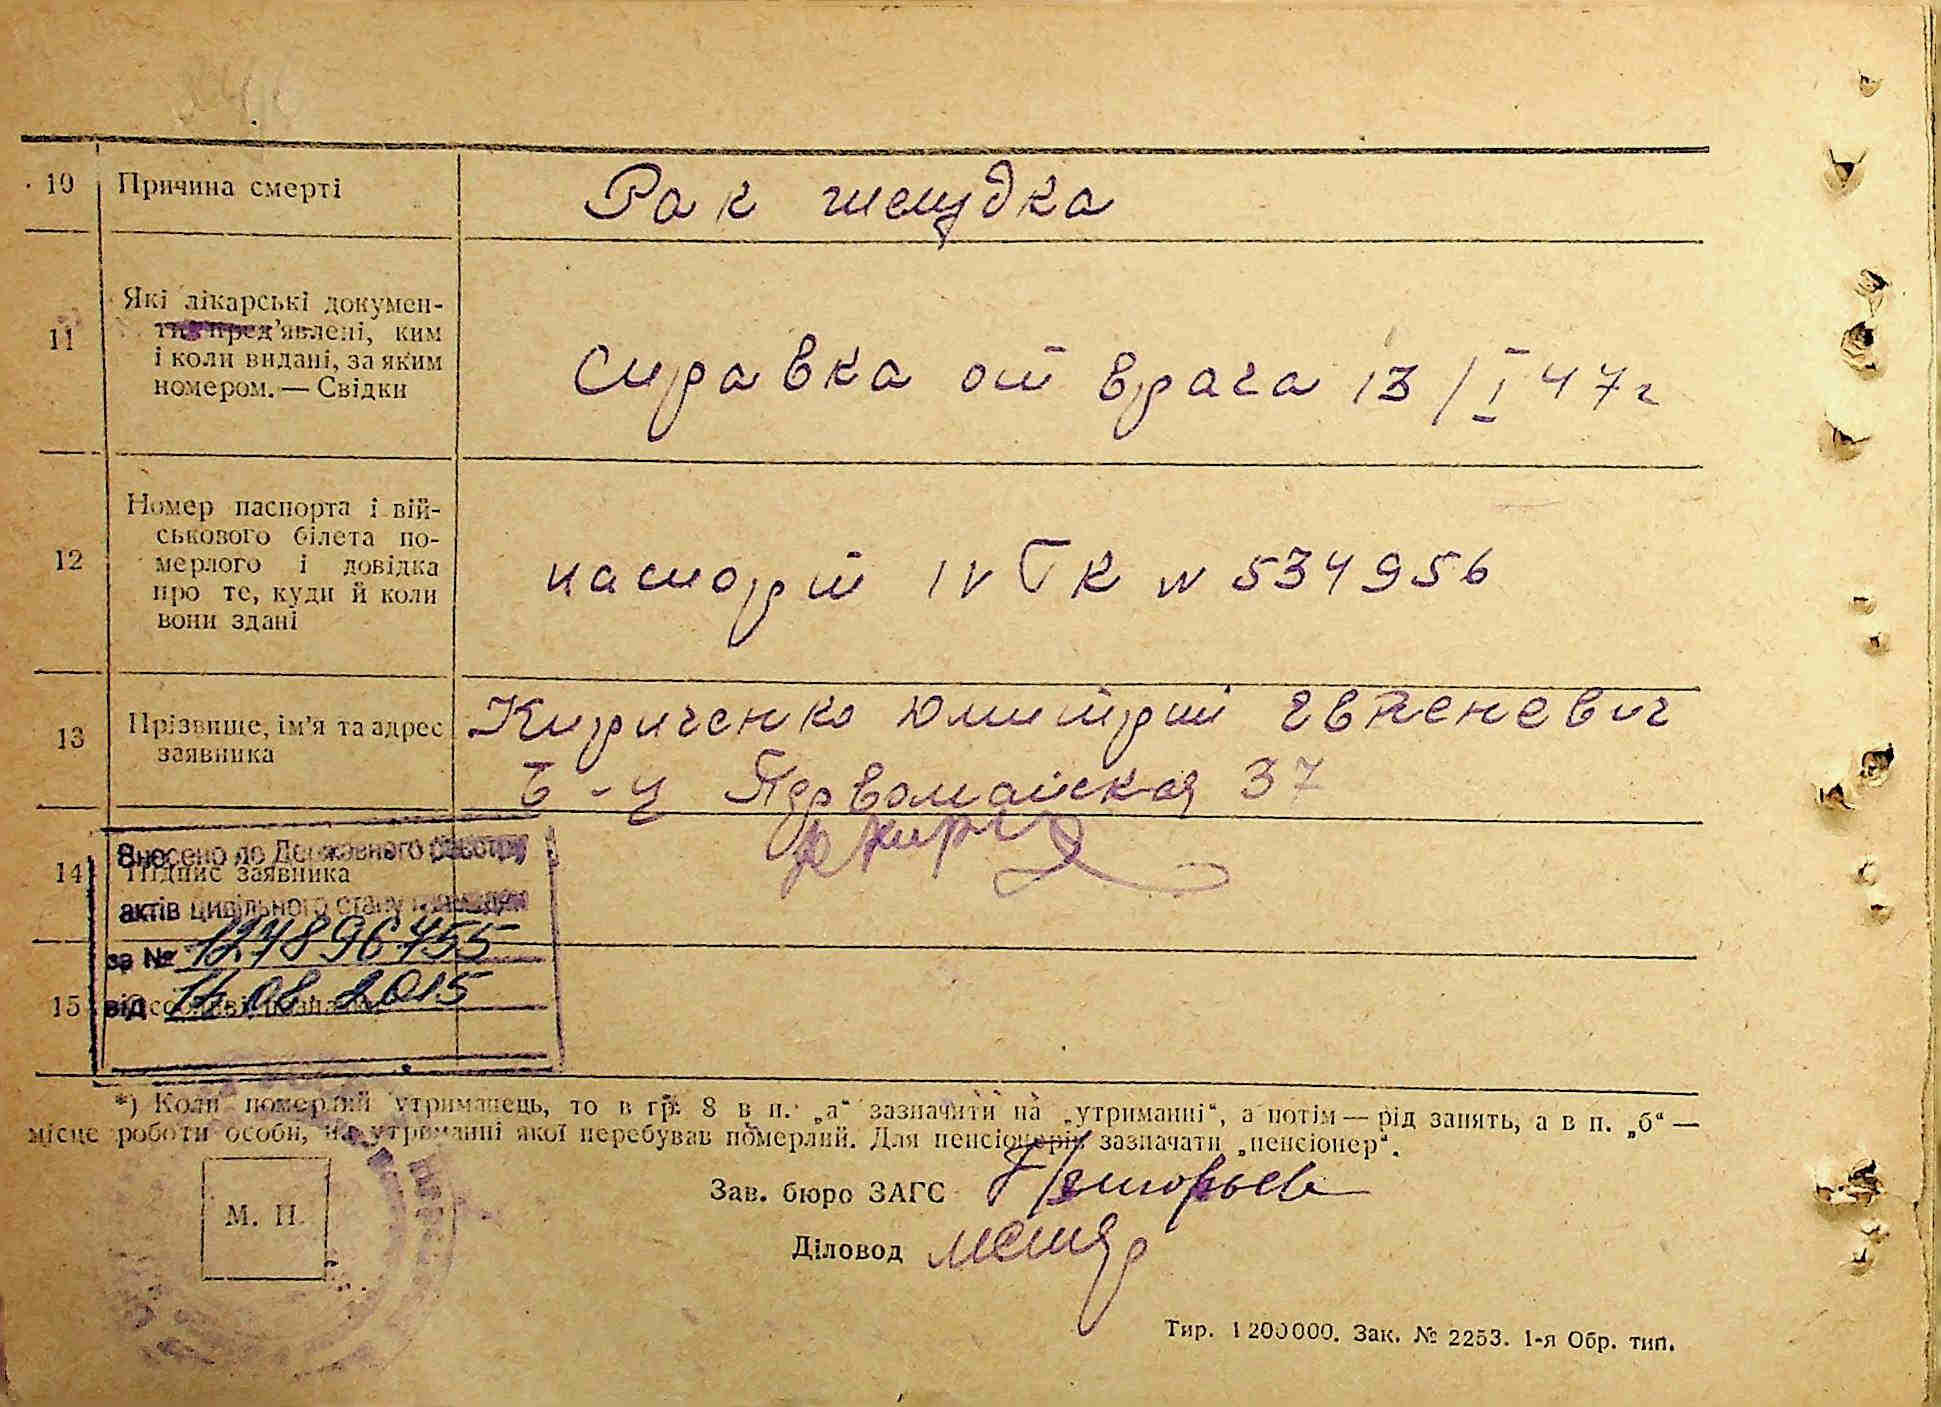 10 Причина смерті Рак желудка
11 Які лікарські докумен-
ти пред’явлені, ким
і коли видані, за яким
номером. — Свідки
Справка от врача 13/I 47 г
12 Номер паспорта і вій-
ськового білета по-
мерлого і довідка
про те, куди й коли
вони здані
паспорт IV ТК № 534956
13 Прізвище, ім’я та адрес
заявника
Кириченко Юмитрий Евгеневич
Б-ц Первомайская 37
14 Підпис заявника
Внесено до Державного реєстру
актів цивільного стану громадян
за № 124896455
від 14.08.2015
15
*) Коли померлий утриманець, то в гр. 8 в п. „а“ зазначити на „утриманні“, а потім — рід занять, а в п. „б“ —
місце роботи особи, на утриманні якої перебував померлий. Для пенсіонерів зазначати „пенсіонер“.
М. П.
Зав. бюро ЗАГС
Діловод
Тир. 1 200000. Зак. № 2253. 1-я Обр. тип.